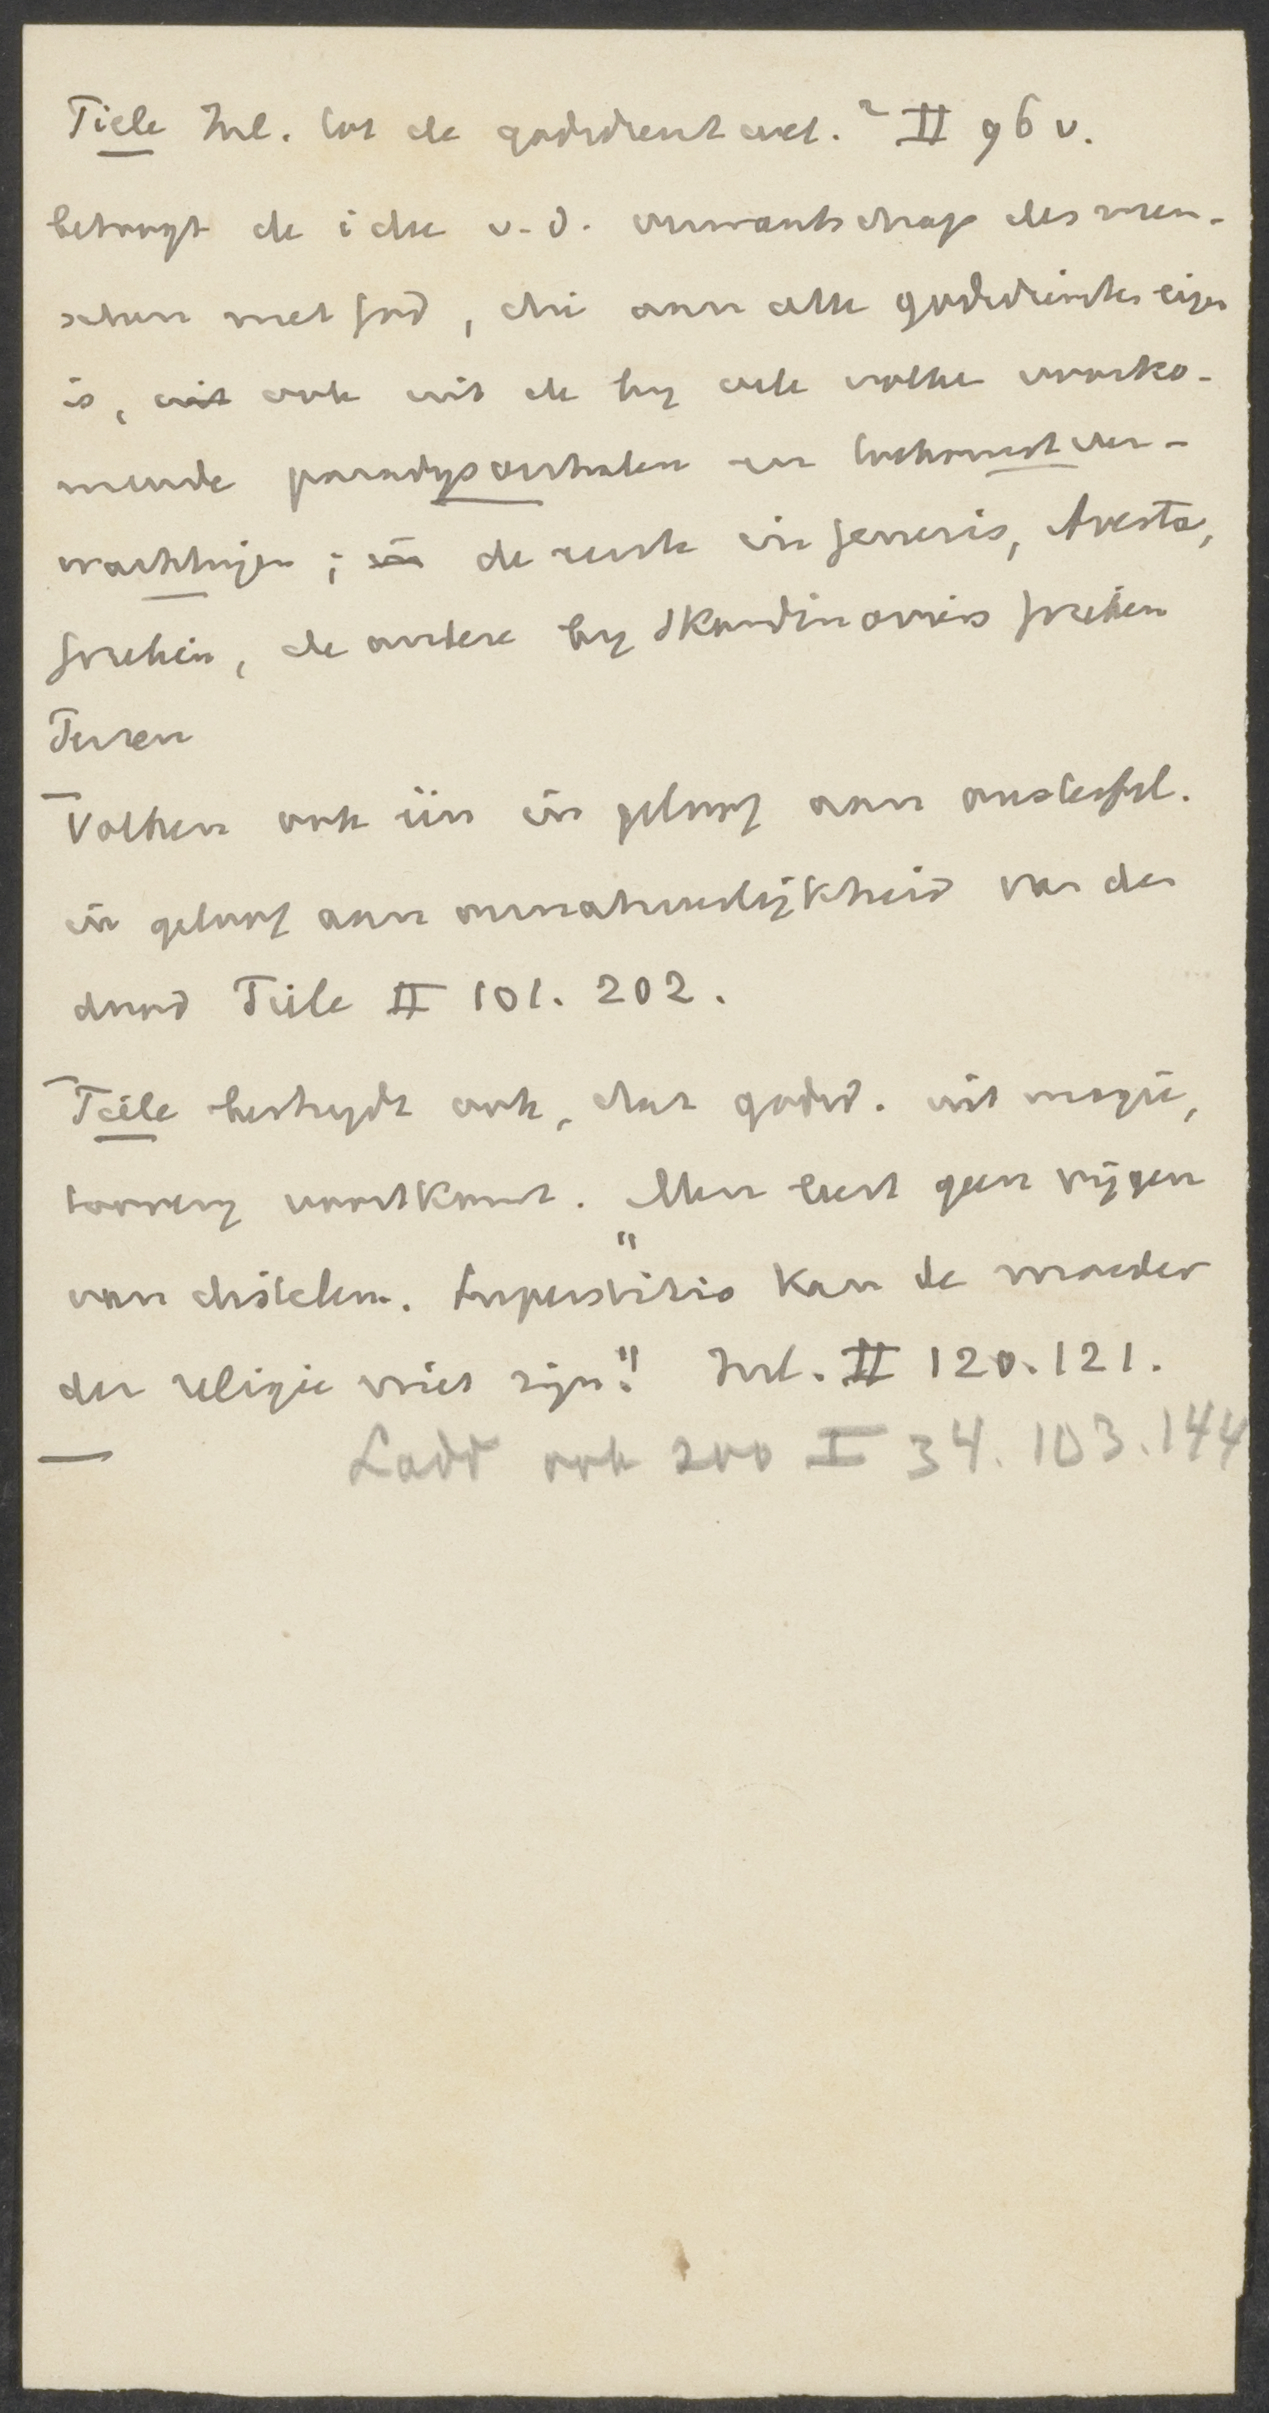 Tiele Inl. tot de godsdienstwet.² II 96 v.
betoogt de idee v. d. verwantschap des men-
schen met God, die aan alle godsdiensten eigen
is, uit ook uit de by vele volken voorko-
mende paradysverhalen en toekomstver-
wachtingen; in de eerste in Genesis, Avesta,
Grieken, de andere by Skandinaviërs Grieken
Perzen
Volken ook één in geloof aan onsterfel.
in geloof aan onnatuurlijkheid van den
dood Tiele II 101. 202.
Tiele bestrydt ook, dat godsd. uit magie,
toovery voortkomt. "Men leest geen vijgen
van distelen. Superstitio kan de moeder
der religie niet zijn." Inl. II 120. 121.
Ladd ook zoo I 34. 103. 144